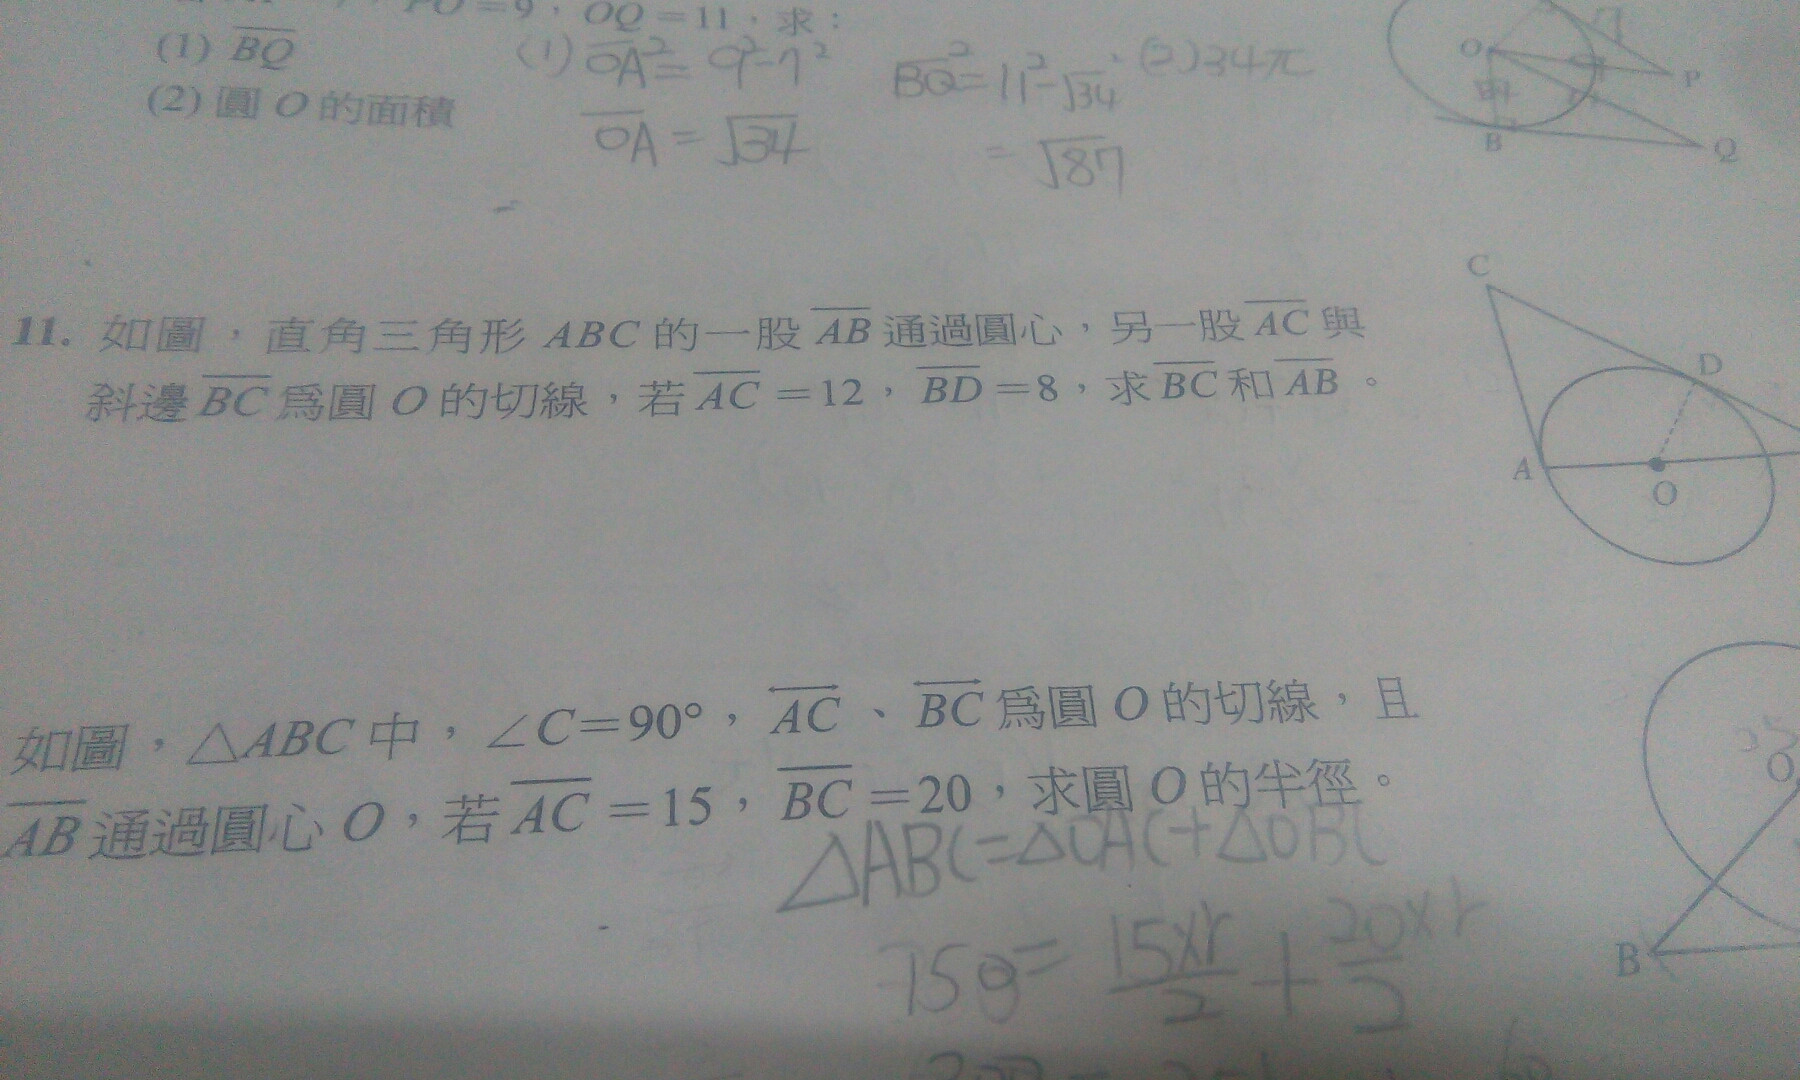 PO=9,OQ=11,求:
(1) BQ
(2) 圓 O 的面積
(1) OA²=9²-7²
OA=√34
BQ²=11²-√34²
=√87
(2)34π
O
P
B
Q
11. 如圖,直角三角形 ABC 的一股 AB 通過圓心,另一股 AC 與
斜邊 BC 為圓 O 的切線,若 AC=12,BD=8,求 BC 和 AB。
C
D
A
O
如圖,△ABC 中,∠C=90°,AC、BC 為圓 O 的切線,且
AB 通過圓心 O,若 AC=15,BC=20,求圓 O 的半徑。
△ABC=△OAC+△OBC
=15×r/2+20×r/2
O
B